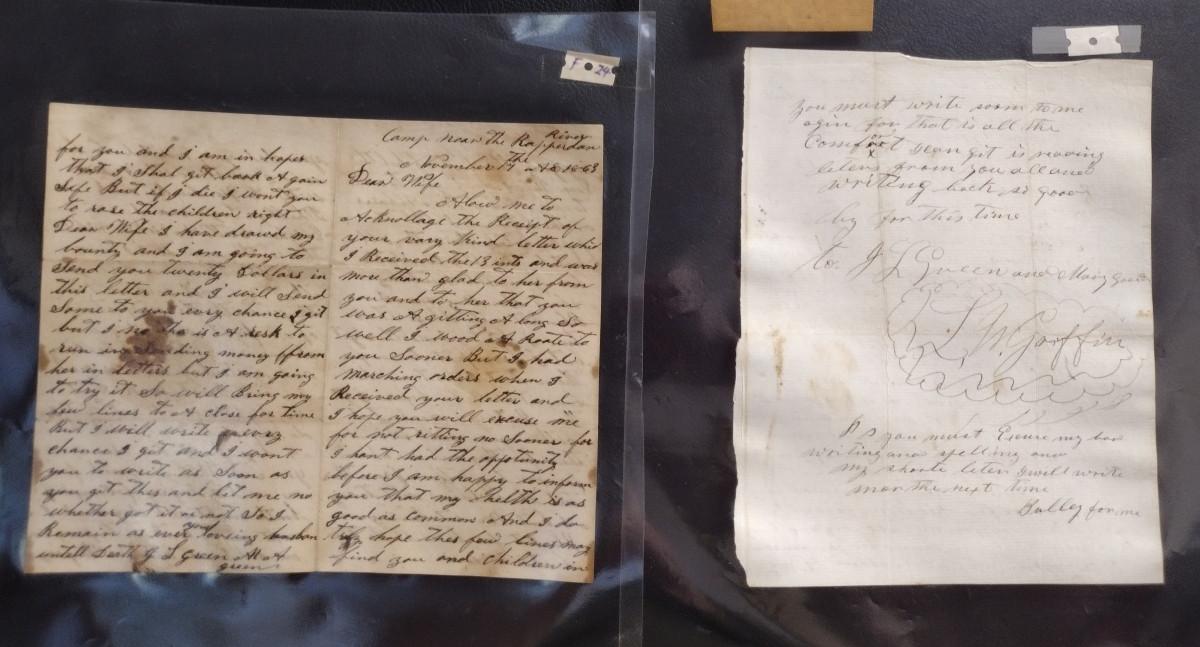 F 24
Camp near the Rapperdan
River
November the 17 AD 1863
Dear Wife
Alow me to
Acknollage the Receipt of
your vary kind letter whic
I Received the 13 ints and was
more than glad to her from
you and to her that you
was A gitting A long So
well I wood A Roate to
you Sooner But I had
marching orders when I
Received your letter and
I hope you will excuse me
for not ritting no Sooner for
I hant had the opptunity
before I am happy to inform
you that my helth is as
good as common And I do
truly hope thes few lines may
find you and Children in
for you and I am in hopes
that I Shal git back A gain
Safe But if I die I wont you
to rase the children right
Dear Wife I have drawd my
bounty and I am going to
Send you twenty Dollars in
this letter and I will Send
Some to you evry chance I git
but I no the is A resk to
run in Sending money ffrom
her in letters but I am going
to try it So will Bring my
few lines to A close for time
But I will write evry
chance I git and I wont
you to write as Soon as
you get thes and let me no
whether got it or not So I
Remain as ever your loveing husban
untill Deth J L Green
green
you must write soon to me
agin for that is all the
Comfort I can git is
leters from you all and
writing back so good
by for this time
to J L Green and Mary Green
L. W. Griffin
PS you must Excure my bad
writing and spelling and
my shorte leter I will write
mor the next time
for me